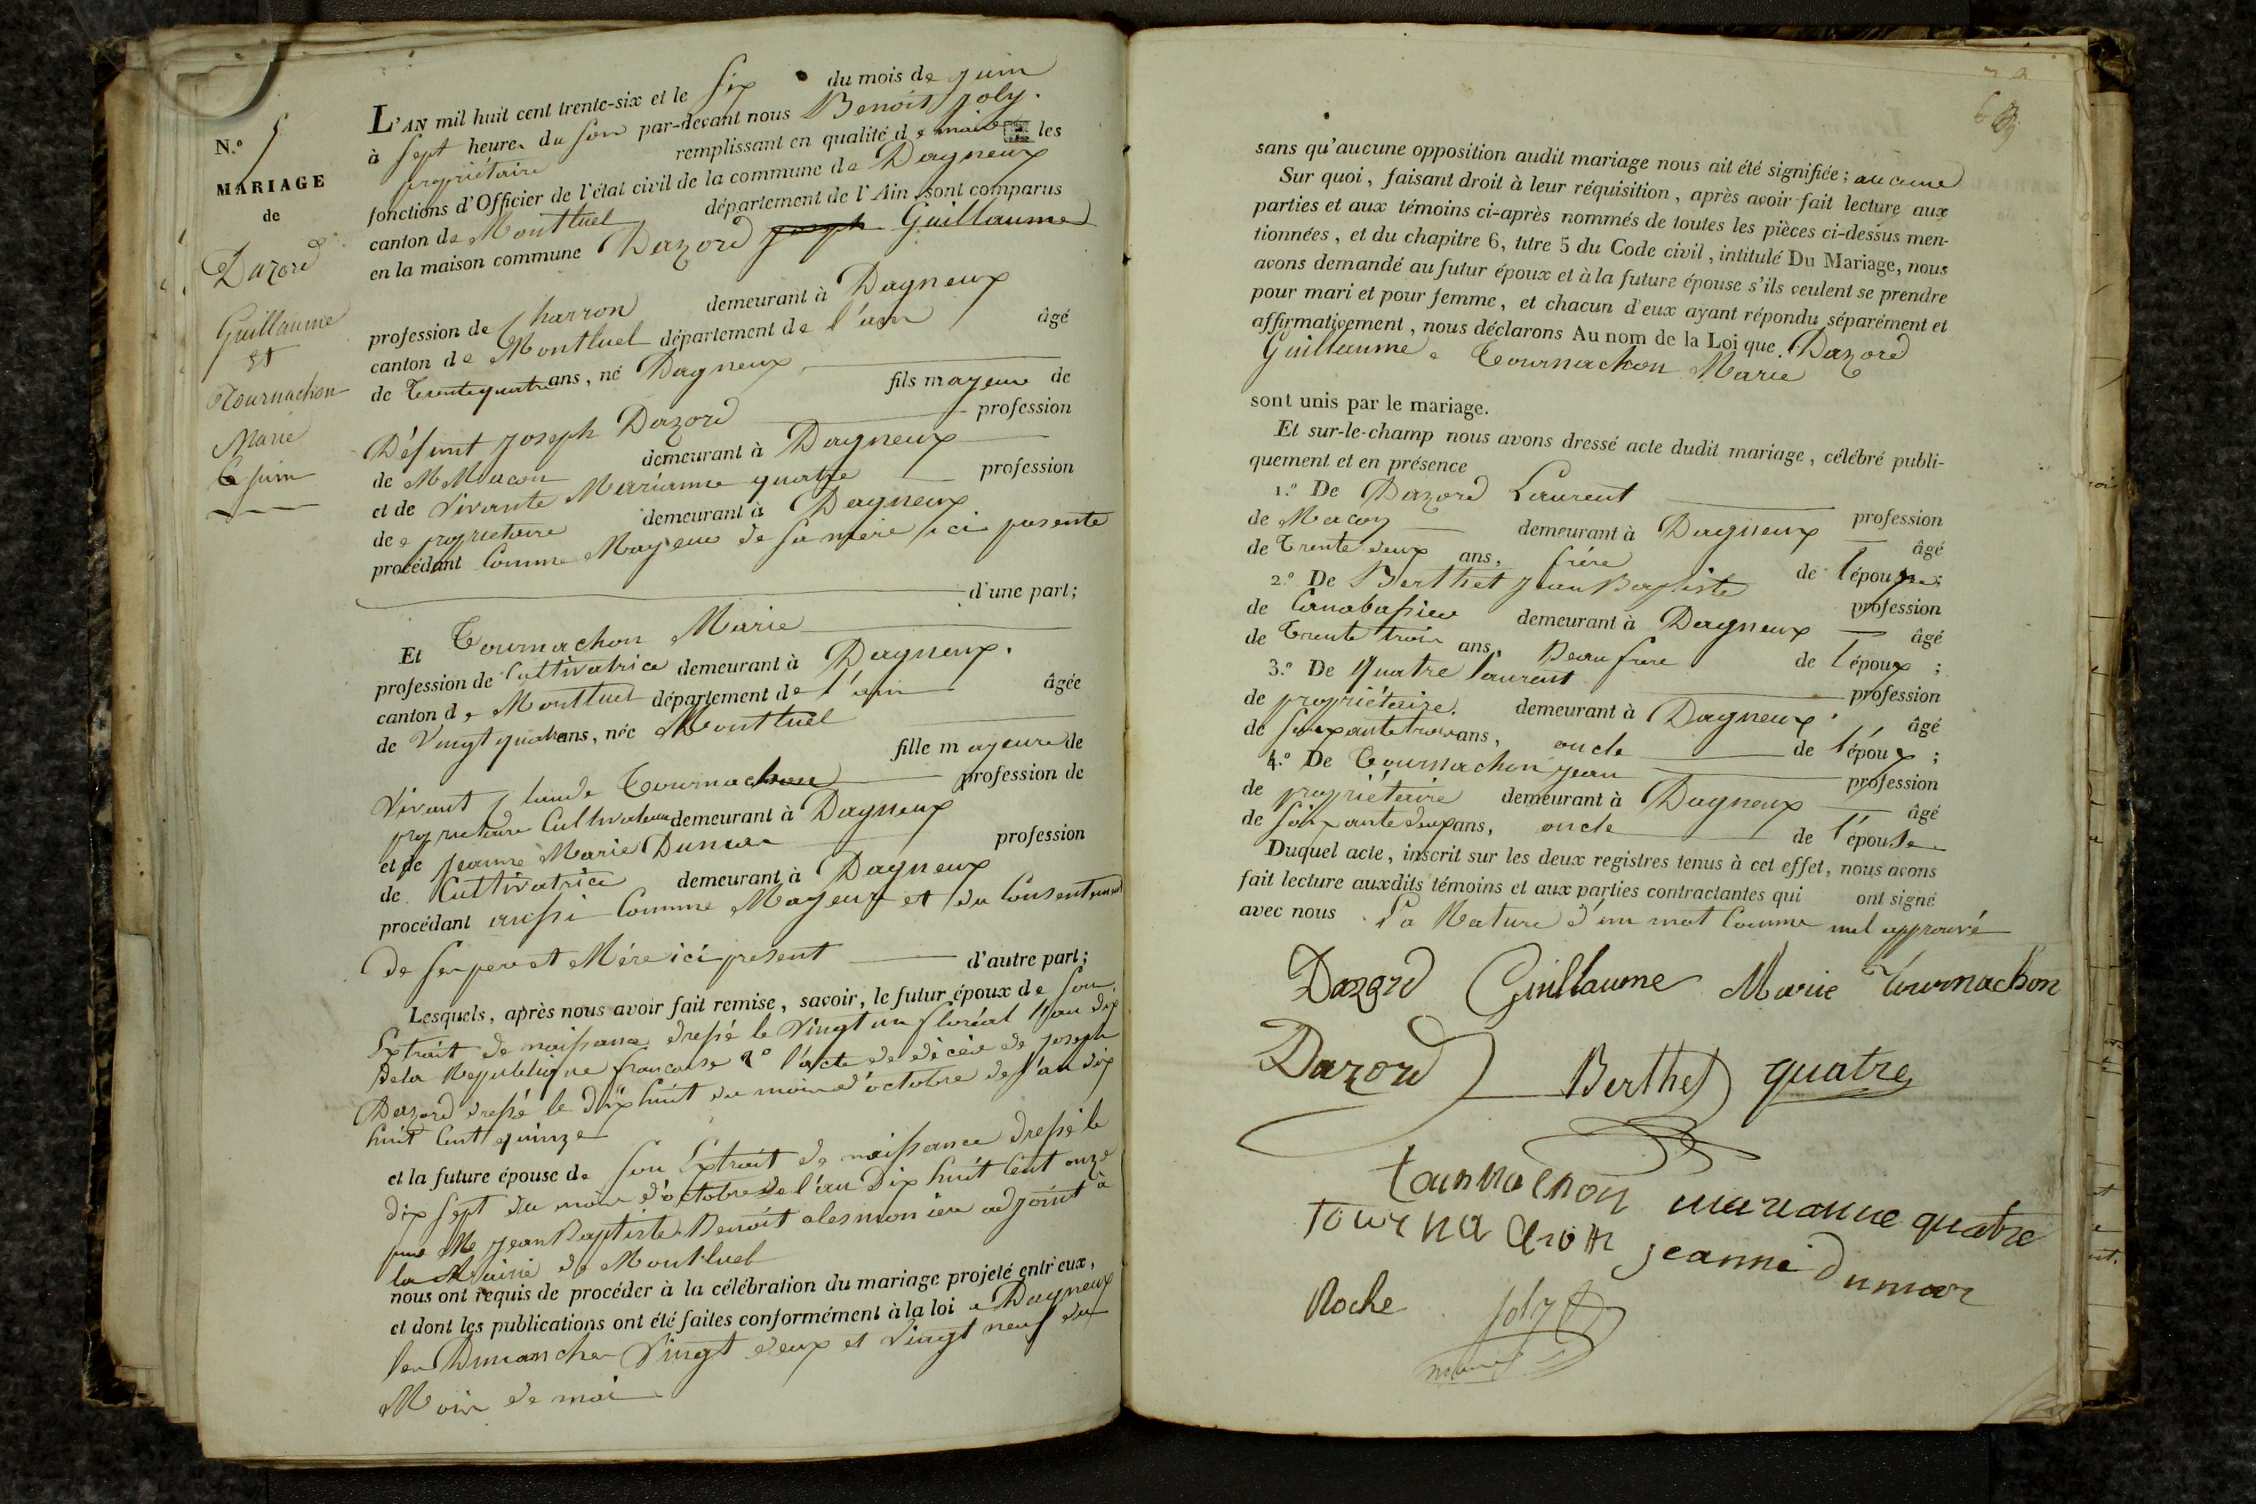 N.o 5
MARIAGE
de
Dazord
Guillaume
Et
Tournachon
Marie
6 juin
L'AN mil huit cent trente-six et le Six du mois de juin
à Sept heures du Soir par-devant nous Benoit Joly.
propriétaire remplissant en qualité de maire les
fonctions d'Officier de l'état civil de la commune de Dagneux
canton de Montluel département de l'Ain, sont comparus
en la maison commune Dazord Joseph Guillaume
profession de Charron demeurant à Dagneux
canton de Montluel département de l'ain âgé
de Trente quatre ans, né Dagneux
fils mayeur de
Défunt Joseph Dazord profession
de Macon demeurant à Dagneux
et de Vivante Marianne quatre profession
de propriétaire demeurant à Dagneux
procédant Comme Mayeur de Sa mère ici présente
d'une part;
Et Tournachon Marie
profession de Cultivatrice demeurant à Dagneux.
canton de Montluel département de l'ain âgée
de Vingt quatre ans, née Montluel
fille mayeure de
Vivant Claude Tournachon profession de
propriétaire Cultivateur demeurant à Dagneux
et de Jeanne Marie Dumas profession
de Cultivatrice demeurant à Dagneux
procédant aussi Comme Mayeur et du Consentement
de Ses pere et Mère ici présent d'autre part;
Lesquels, après nous avoir fait remise, savoir, le futur époux de Son
Extrait de naissance dressé le Vingt un floréal l'an dix
de la Republique francaise 2o l'acte de décés de Joseph
Dazord dressé le dix huit du mois d'octobre de l'an dix
huit Cent quinze
et la future épouse de Son Extrait de naissance dressé le
dix Sept du mois d'octobre de l'an Dix huit Cent onze
par Me Jean Baptiste Benoit alesmonière adjoint à
la Mairie de Montluel
nous ont requis de procéder à la célébration du mariage projeté entr'eux,
et dont les publications ont été faites conformément à la loi a Dagneux
les Dimanches Vingt deux et Vingt neuf du
Mois de mai
sans qu'aucune opposition audit mariage nous ait été signifiée; aucune
Sur quoi, faisant droit à leur réquisition, après avoir fait lecture aux
parties et aux témoins ci-après nommés de toutes les pièces ci-dessus men-
tionnées, et du chapitre 6, titre 5 du Code civil, intitulé Du Mariage, nous
avons demandé au futur époux et à la future épouse s'ils veulent se prendre
pour mari et pour femme, et chacun d'eux ayant répondu séparément et
affirmativement, nous déclarons Au nom de la Loi que Dazord
Guillaume e Tournachon Marie
sont unis par le mariage.
Et sur-le-champ nous avons dressé acte dudit mariage, célébré publi-
quement et en présence
1.o De Dazord Laurent profession
de Maçon demeurant à Dagneux âgé
de Trente deux ans, frére de l'époux;
2.o De Berthet Jean Baptiste profession
de demeurant à Dagneux âgé
de Trente trois ans, Beau frere de l'époux;
3.o De Quatre laurent profession
de propriétaire. demeurant à Dagneux âgé
de Soixante trois ans, oncle de l'époux;
4.o De Tournachon Jean profession
de propriétaire demeurant à Dagneux âgé
de Soixante deux ans, oncle de l'épouse
Duquel acte, inscrit sur les deux registres tenus à cet effet, nous avons
fait lecture auxdits témoins et aux parties contractantes qui ont signé
avec nous La Rature d'un mot Comme nul approuvé
Dazord Guillaume Marie Tournachon
Dazord Berthet quatre
tournachon marianne quatre
Tournachon jeanne dumas
Roche Joly
maire